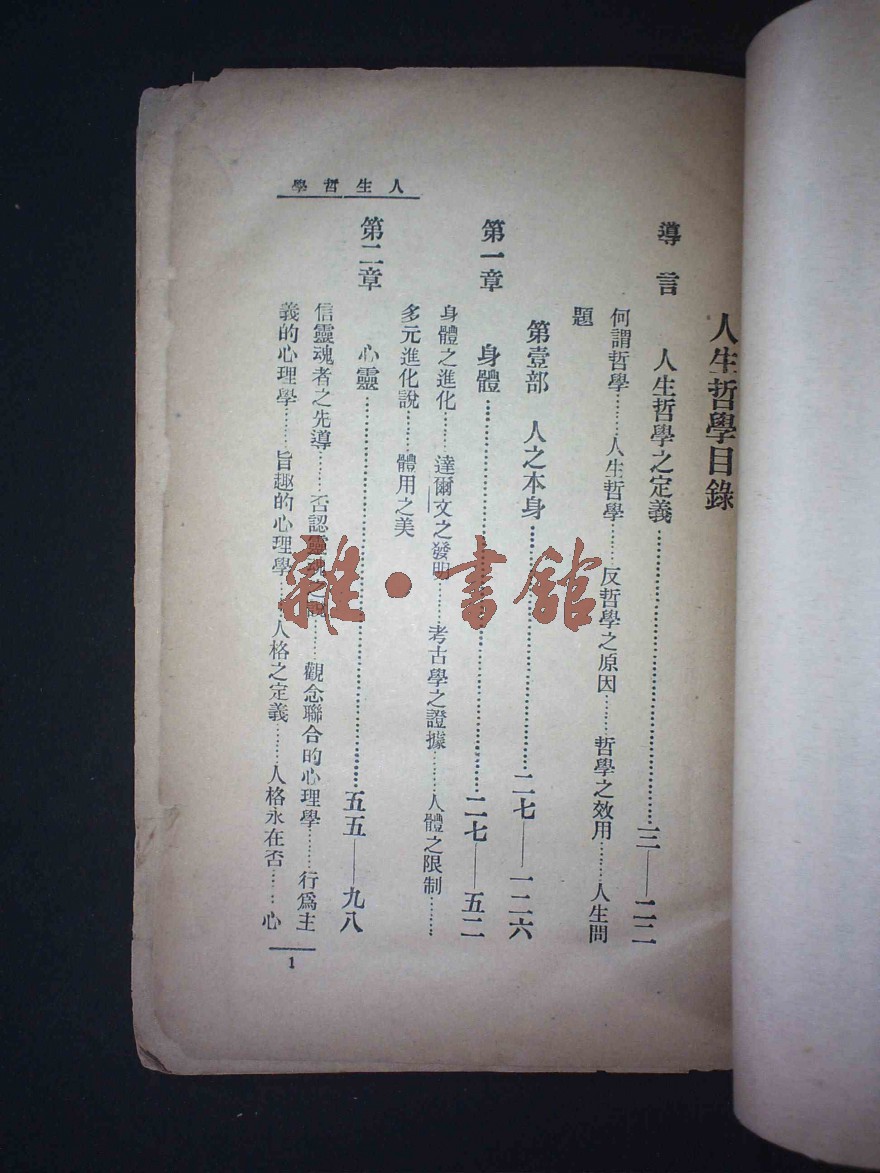 人生哲學目錄
導言 人生哲學之定義……………………三——二二
何謂哲學………人生哲學………反哲學之原因………哲學之效用………人生問
題
第壹部 人之本身……………………二七——一二六
第一章 身體……………………二七——五二
身體之進化………達爾文之發明………考古學之證據………人體之限制………
多元進化說………體用之美
第二章 心靈……………………五五——九八
信靈魂者之先導………否認靈魂之說………觀念聯合的心理學………行爲主
義的心理學………旨趣的心理學………人格之定義………人格永在否………心
人生哲學
1
雜·書館